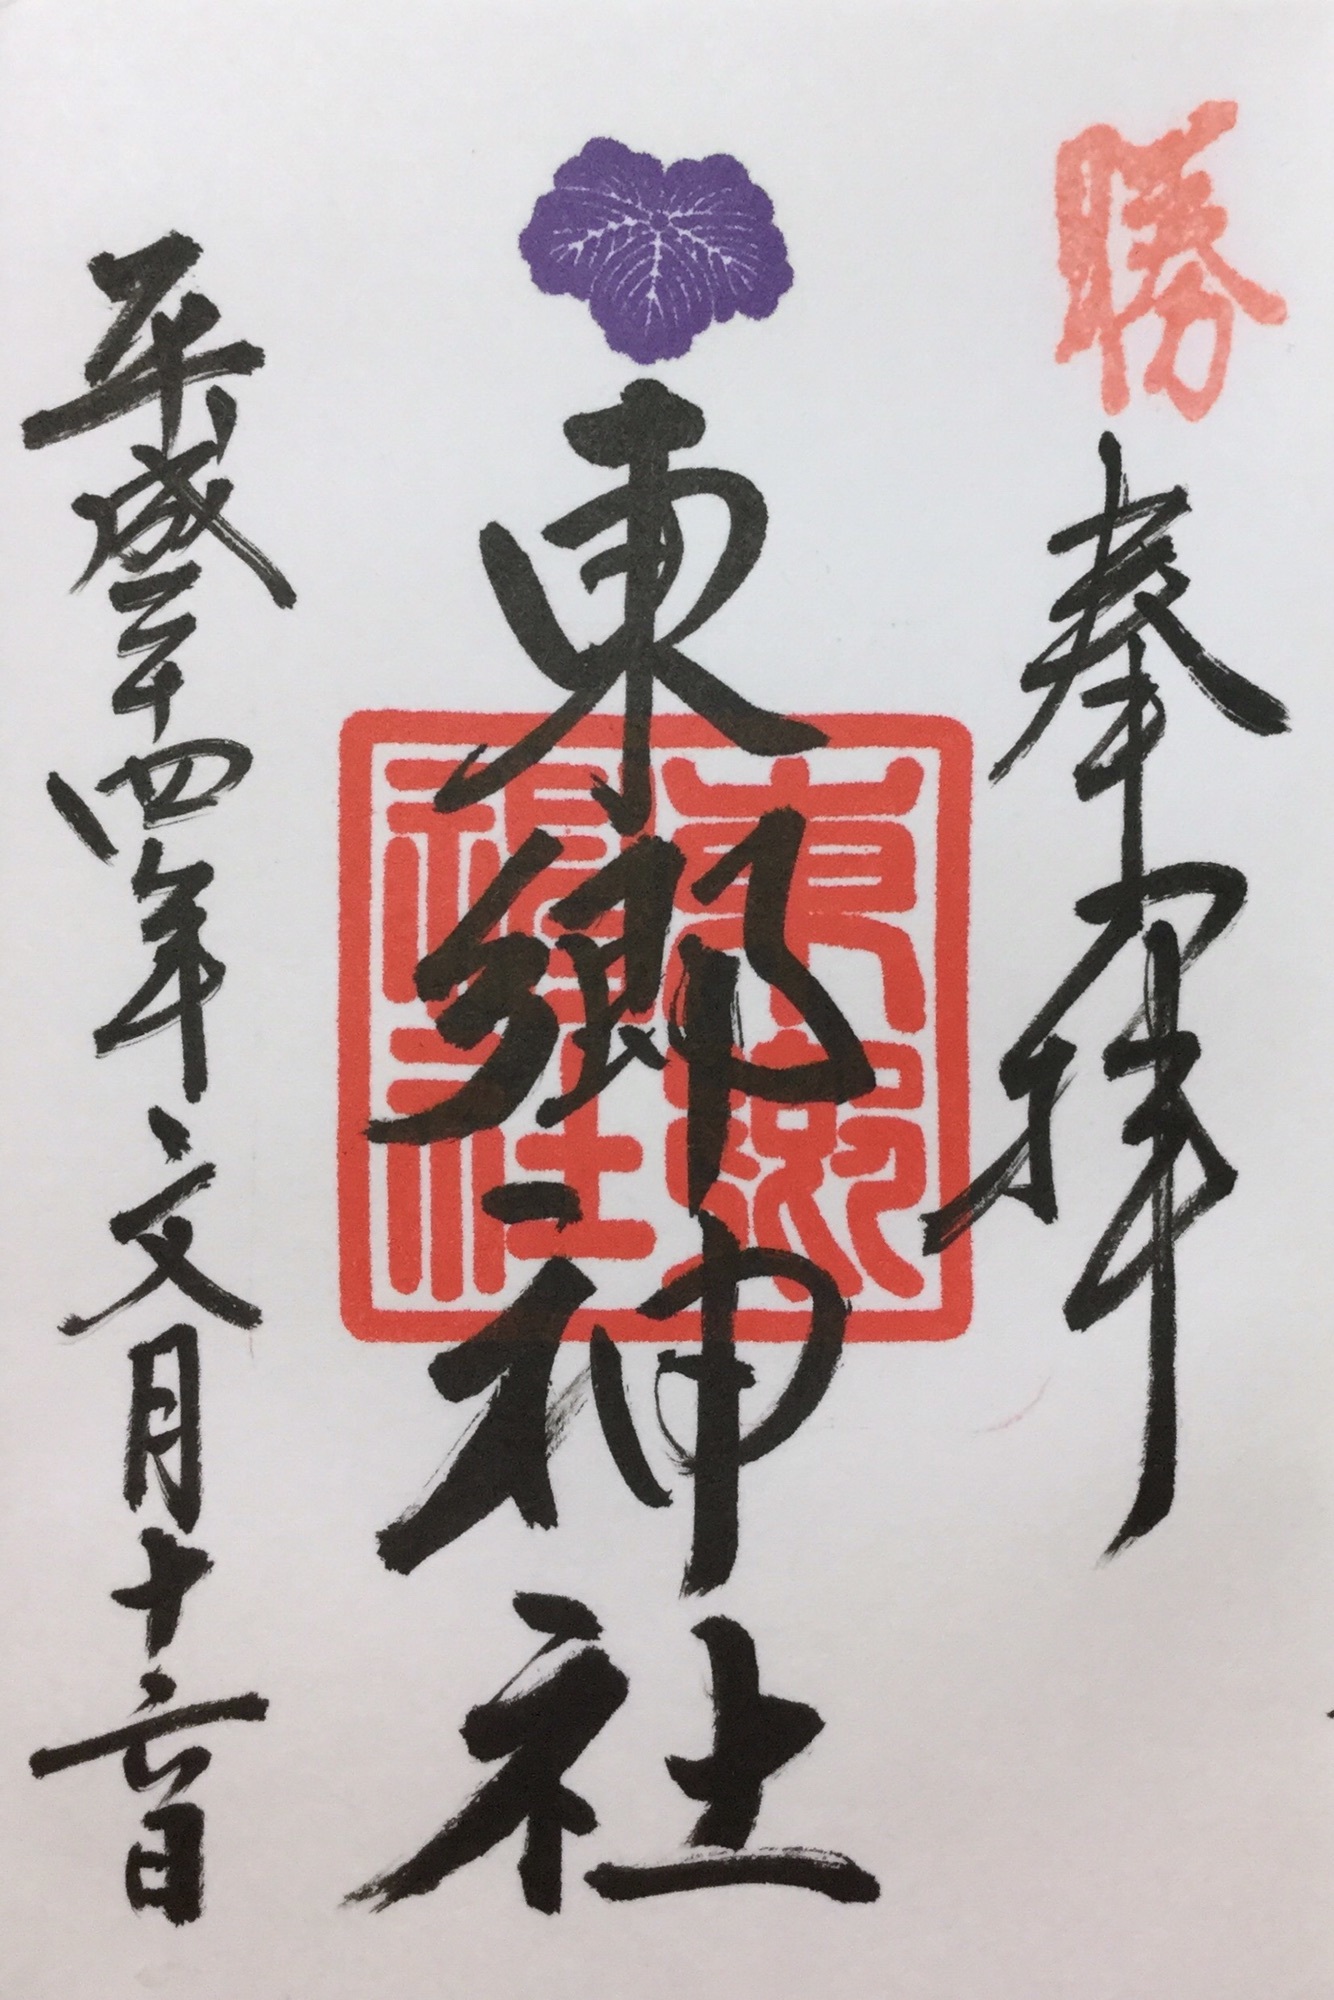 勝
奉拝
東郷神社
東郷
神社
平成二十四年文月十六日